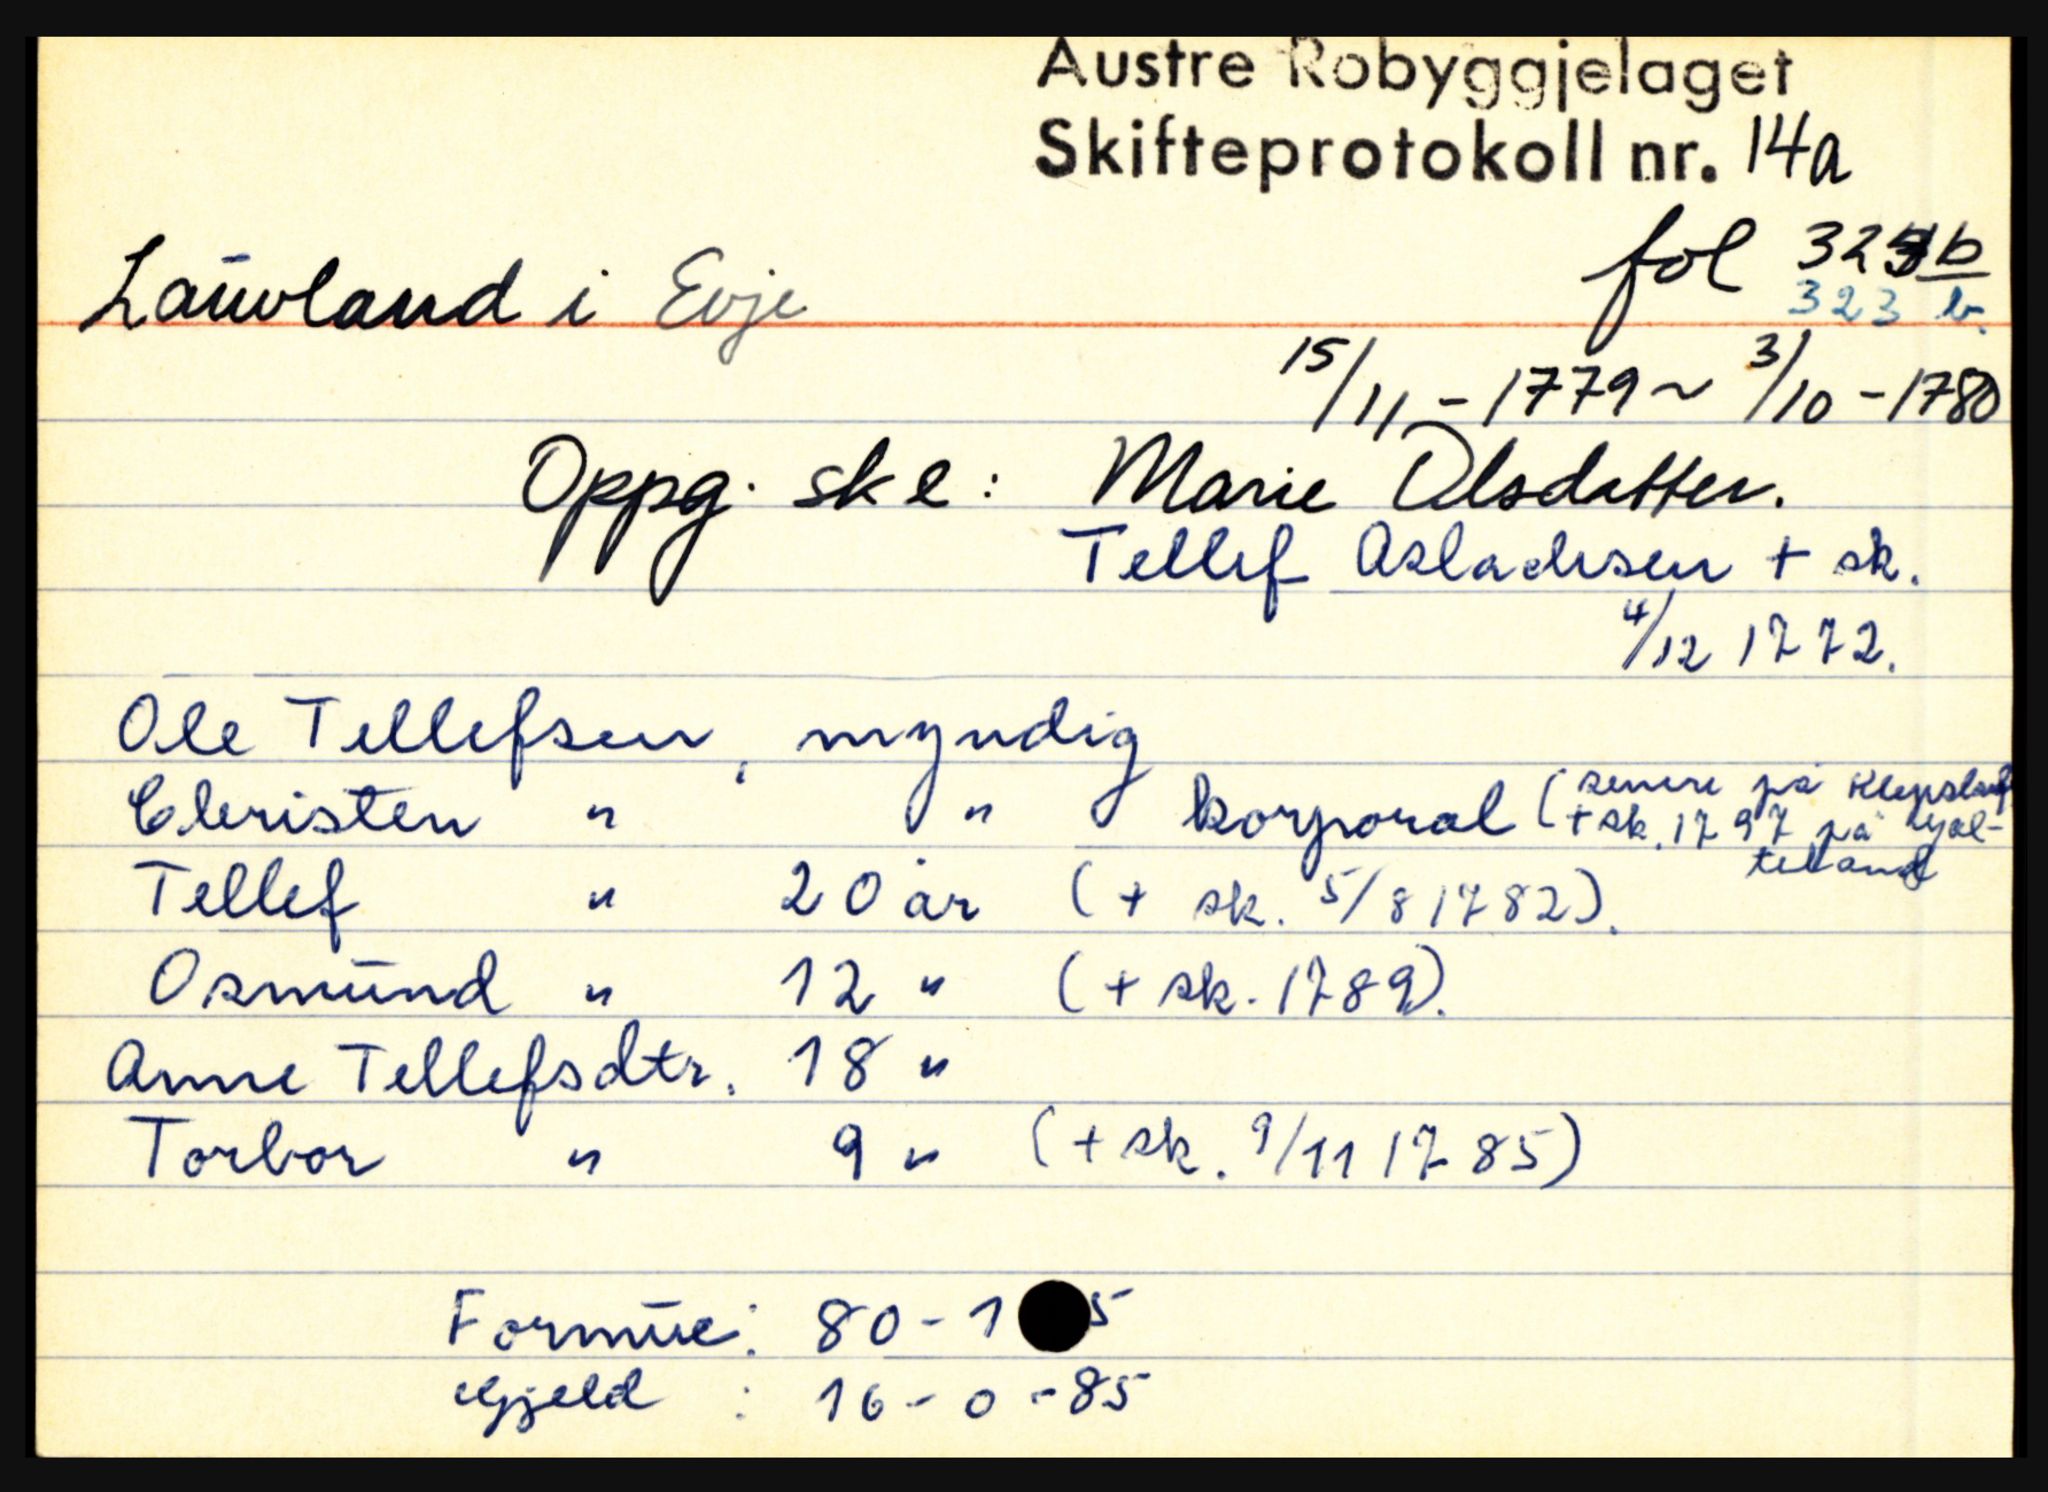 Austre Robyggjelaget
Skifteprotokoll nr. 14a
fol 323b
Lauvland i Evje 323 b.
15/11 - 1779 ~ 3/10 - 1780
Oppg. sk e: Marie Olsdatter.
Tellef Aslachsen + sk.
4/12 1772.
Ole Tellefsen, myndig
Christen " " korporal (senere på Klepsland
+ sk. 1797 på
Tellef " 20 år (+ sk. 5/8 1782).
Osmund " 12 " (+ sk. 1789).
Anne Tellefsdtr. 18 "
Torbor " 9 " (+ sk. 9/11 1785)
Formue: 80 - 1 5
Gjeld : 16 - 0 - 85